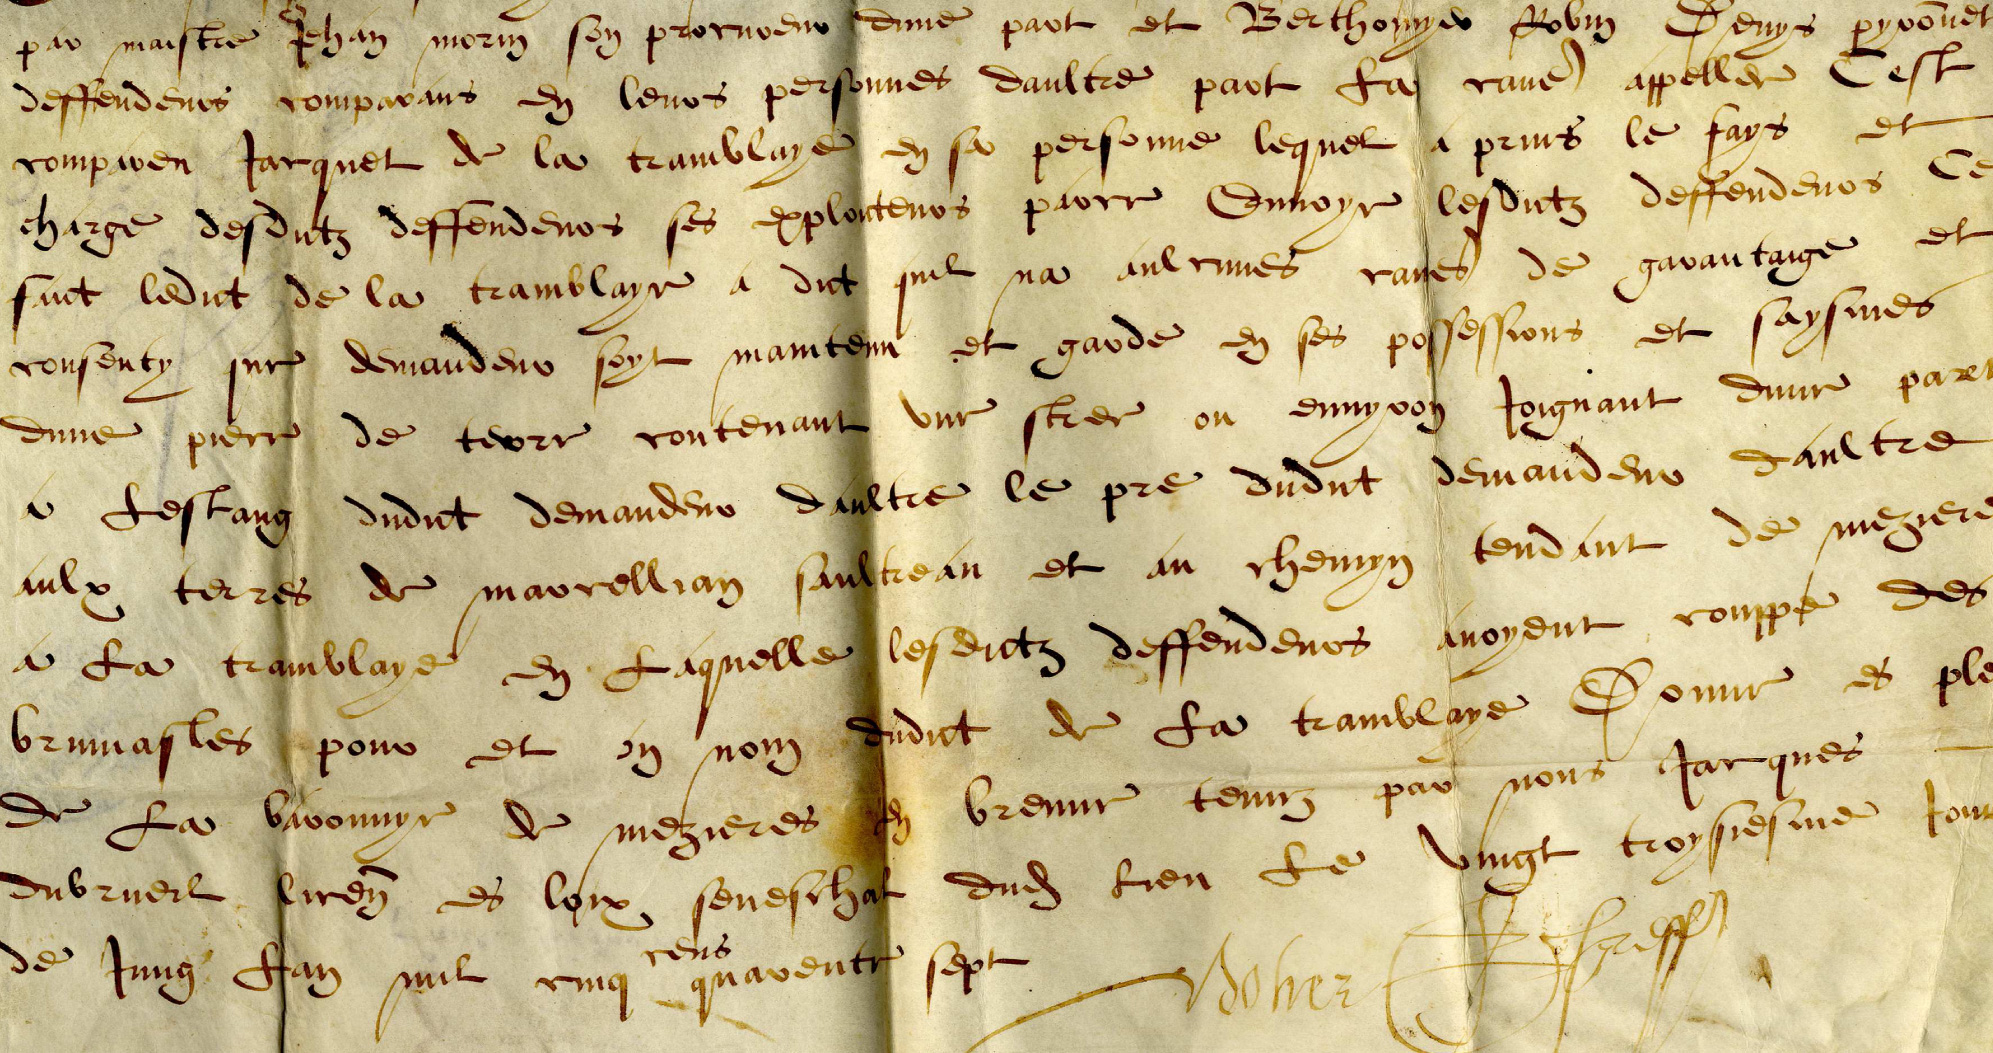 par maistre Jehan morin son procureur dune part et Berthomyer Robin Denys pyronnet
deffendeurs comparans en leurs personnes daultre part La cause appellee Cest
comparen Jacquet de la tramblaye en sa personne lequel a prins le fays et
charge desdictz deffendeurs ses exploicteurs parce Envoye lesdictz deffendeurs Ce
faict ledict de la tramblaye a dict quil na aulcunes causes de garantaige et
consenty que demandeur soyt maintenu et garde en ses possessions et saysines
dune piece de terre contenant une steree ou environ Joignant dune part
a Lestang dudict demandeur daultre le pre dudict demandeur daultre
aulx terres de marcellian saultreau et au chemyn tendant de mezieres
a La tramblaye en Laquelle lesdictz deffendeurs avoyent couppe des
brumasles pour et on nom dudict de La tramblaye Donne es ple
de La baronnye de mezieres en brenne tenuz par nous Jacques
dubrueil licen es loix seneschal dud Lieu Le vingt troysiesme Jour
de Jung Lan mil cinq cens quarente sept